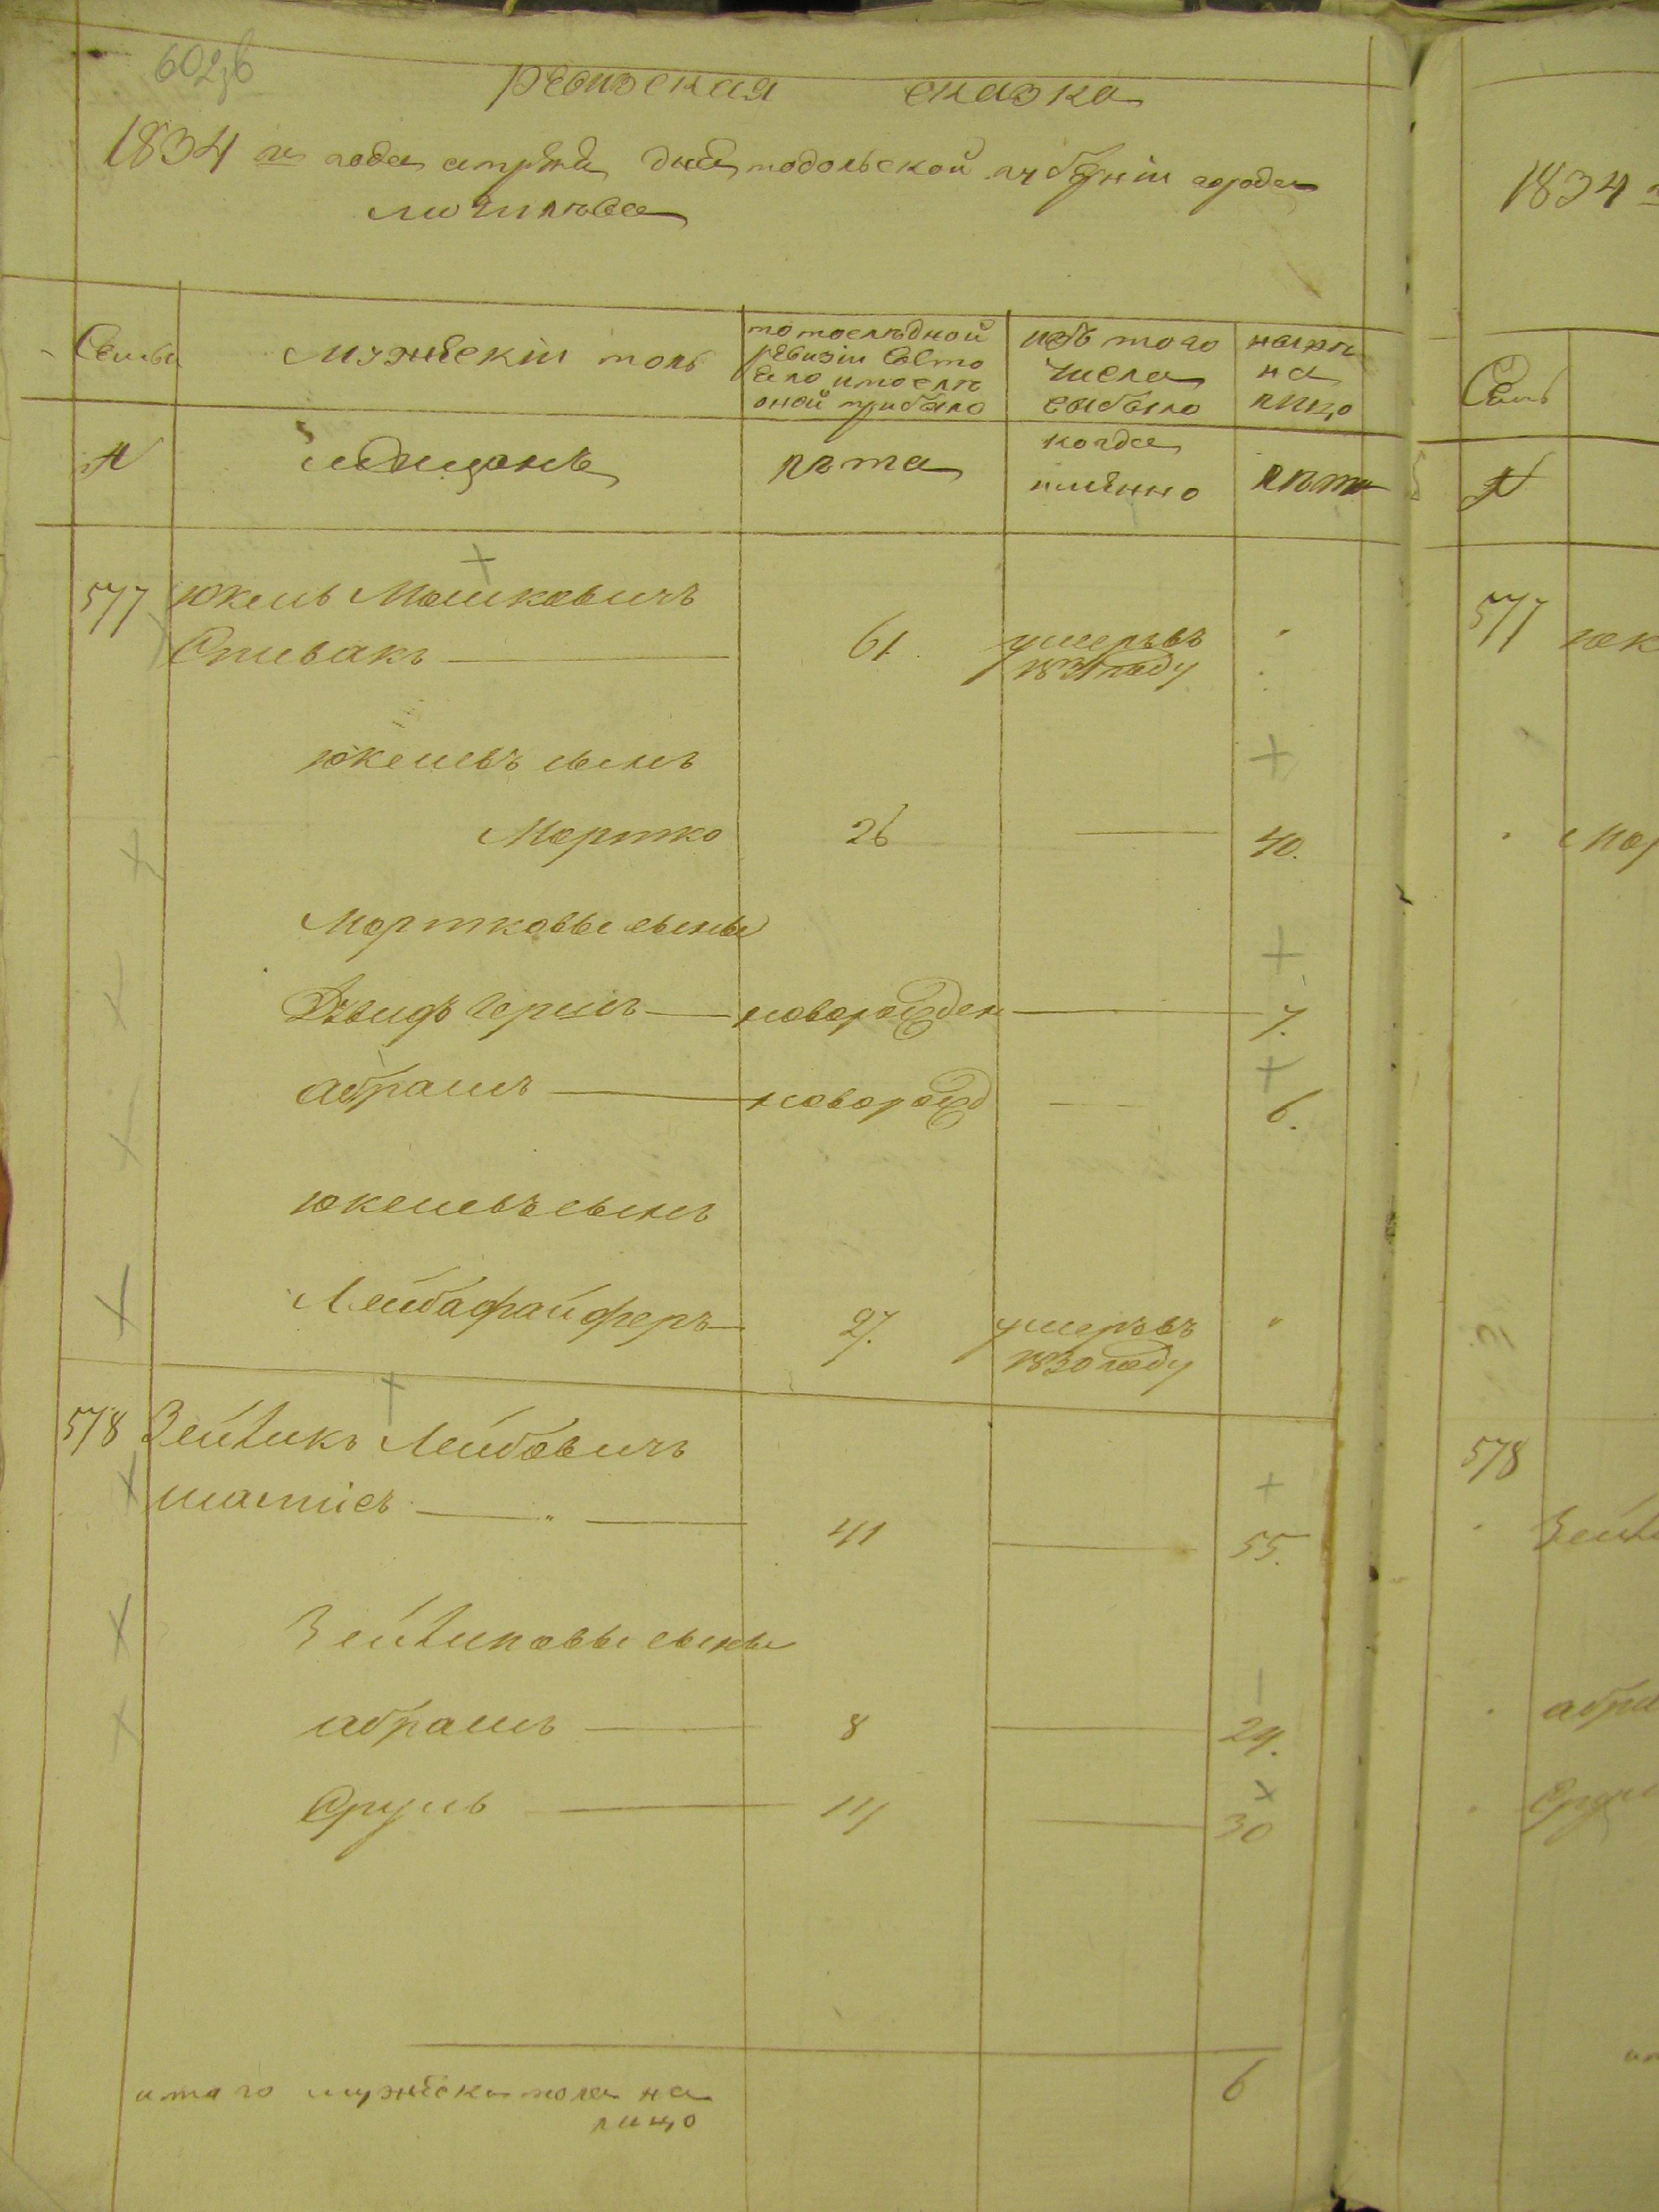 Ревизская сказка
1834 го года апреля дня подольской губерніи города
могилева
Семьи
Мужескій полъ
по последной
ревизіи состо
яло и после
оной прибыло
изъ того
числа
выбыло
ныне
на
лицо
№
мещане
лета
когда
именно
лета
577
Юкель Мошковичъ
Спивакъ
61
умеръ въ
1831 году
Юкелевъ сынъ
Мортко
26
40.
Мортковы сынъы
Дувидъ Гершъ
новорожден
7.
абрамъ
новорожд
6.
Юкелевъ сынъ
Лейба файферъ
27.
умеръ въ
1830 году
578
Зейликъ Лейбовичъ
41
55.
Зейликовы сыны
абрамъ
8
24.
Сруль
14
30
итого мужеска пола на
лицо
6
1834
Семь
№
577
юк
мор
578
Зейл
абра
Срул